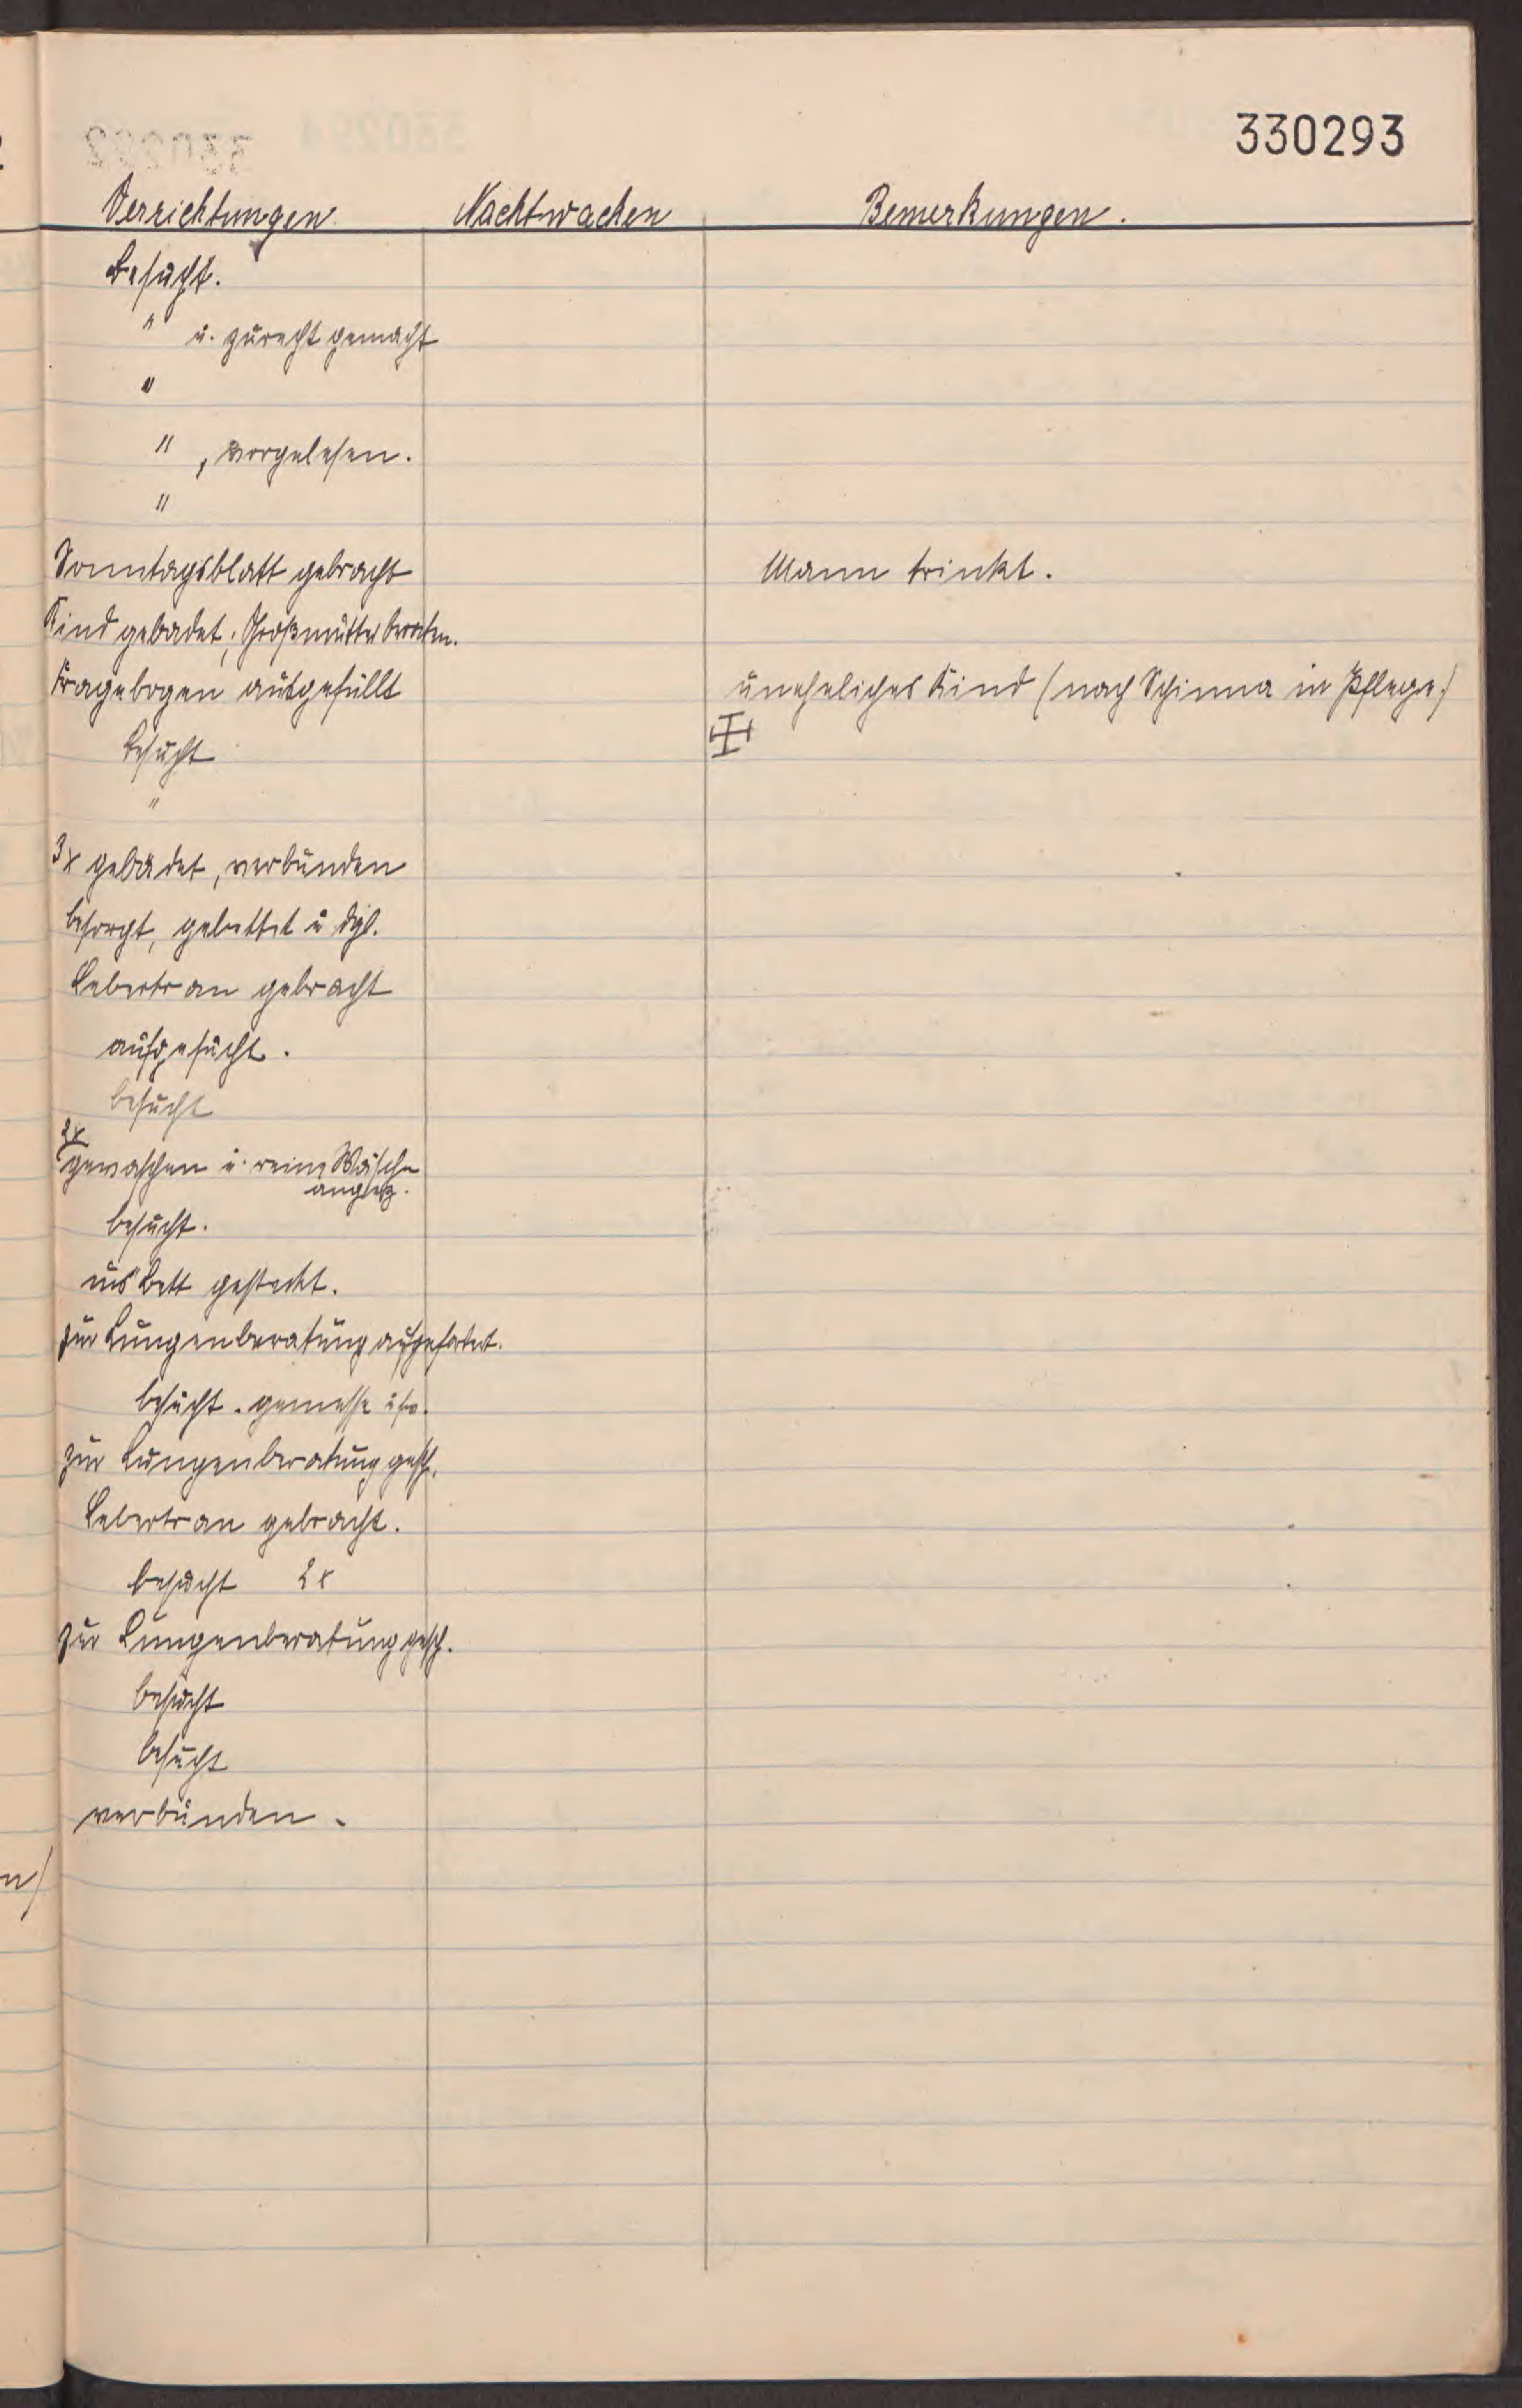 330293
Verrichtungen Nachtwachen Bemerkungen.
Besucht.
" u. zurecht gemacht
"
" , vorgelesen.
"
Sonntagsblatt gebracht Mann trinkt.
Kind gebadet, Großmutter beraten.
Fragebogen ausgefüllt uneheliches Kind (nach Schinna in Pflege.)
besucht
"
3x gebadet, verbunden
besorgt, gebettet u dgl.
Lebertran gebracht
aufgesucht.
besucht
2x
gewaschen u. reine Wäsche
angez.
besucht.
ins Bett gesteckt.
zur Lungenberatung aufgefordert.
besucht. gemesse usw.
zur Lungenberatung gesch.
Lebertran gebracht.
besucht 2x
zur Lungenberatung gesch.
besucht
besucht
verbunden.